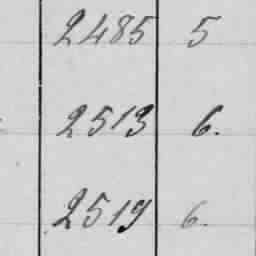 2485 5
2513 6.
2519 6.